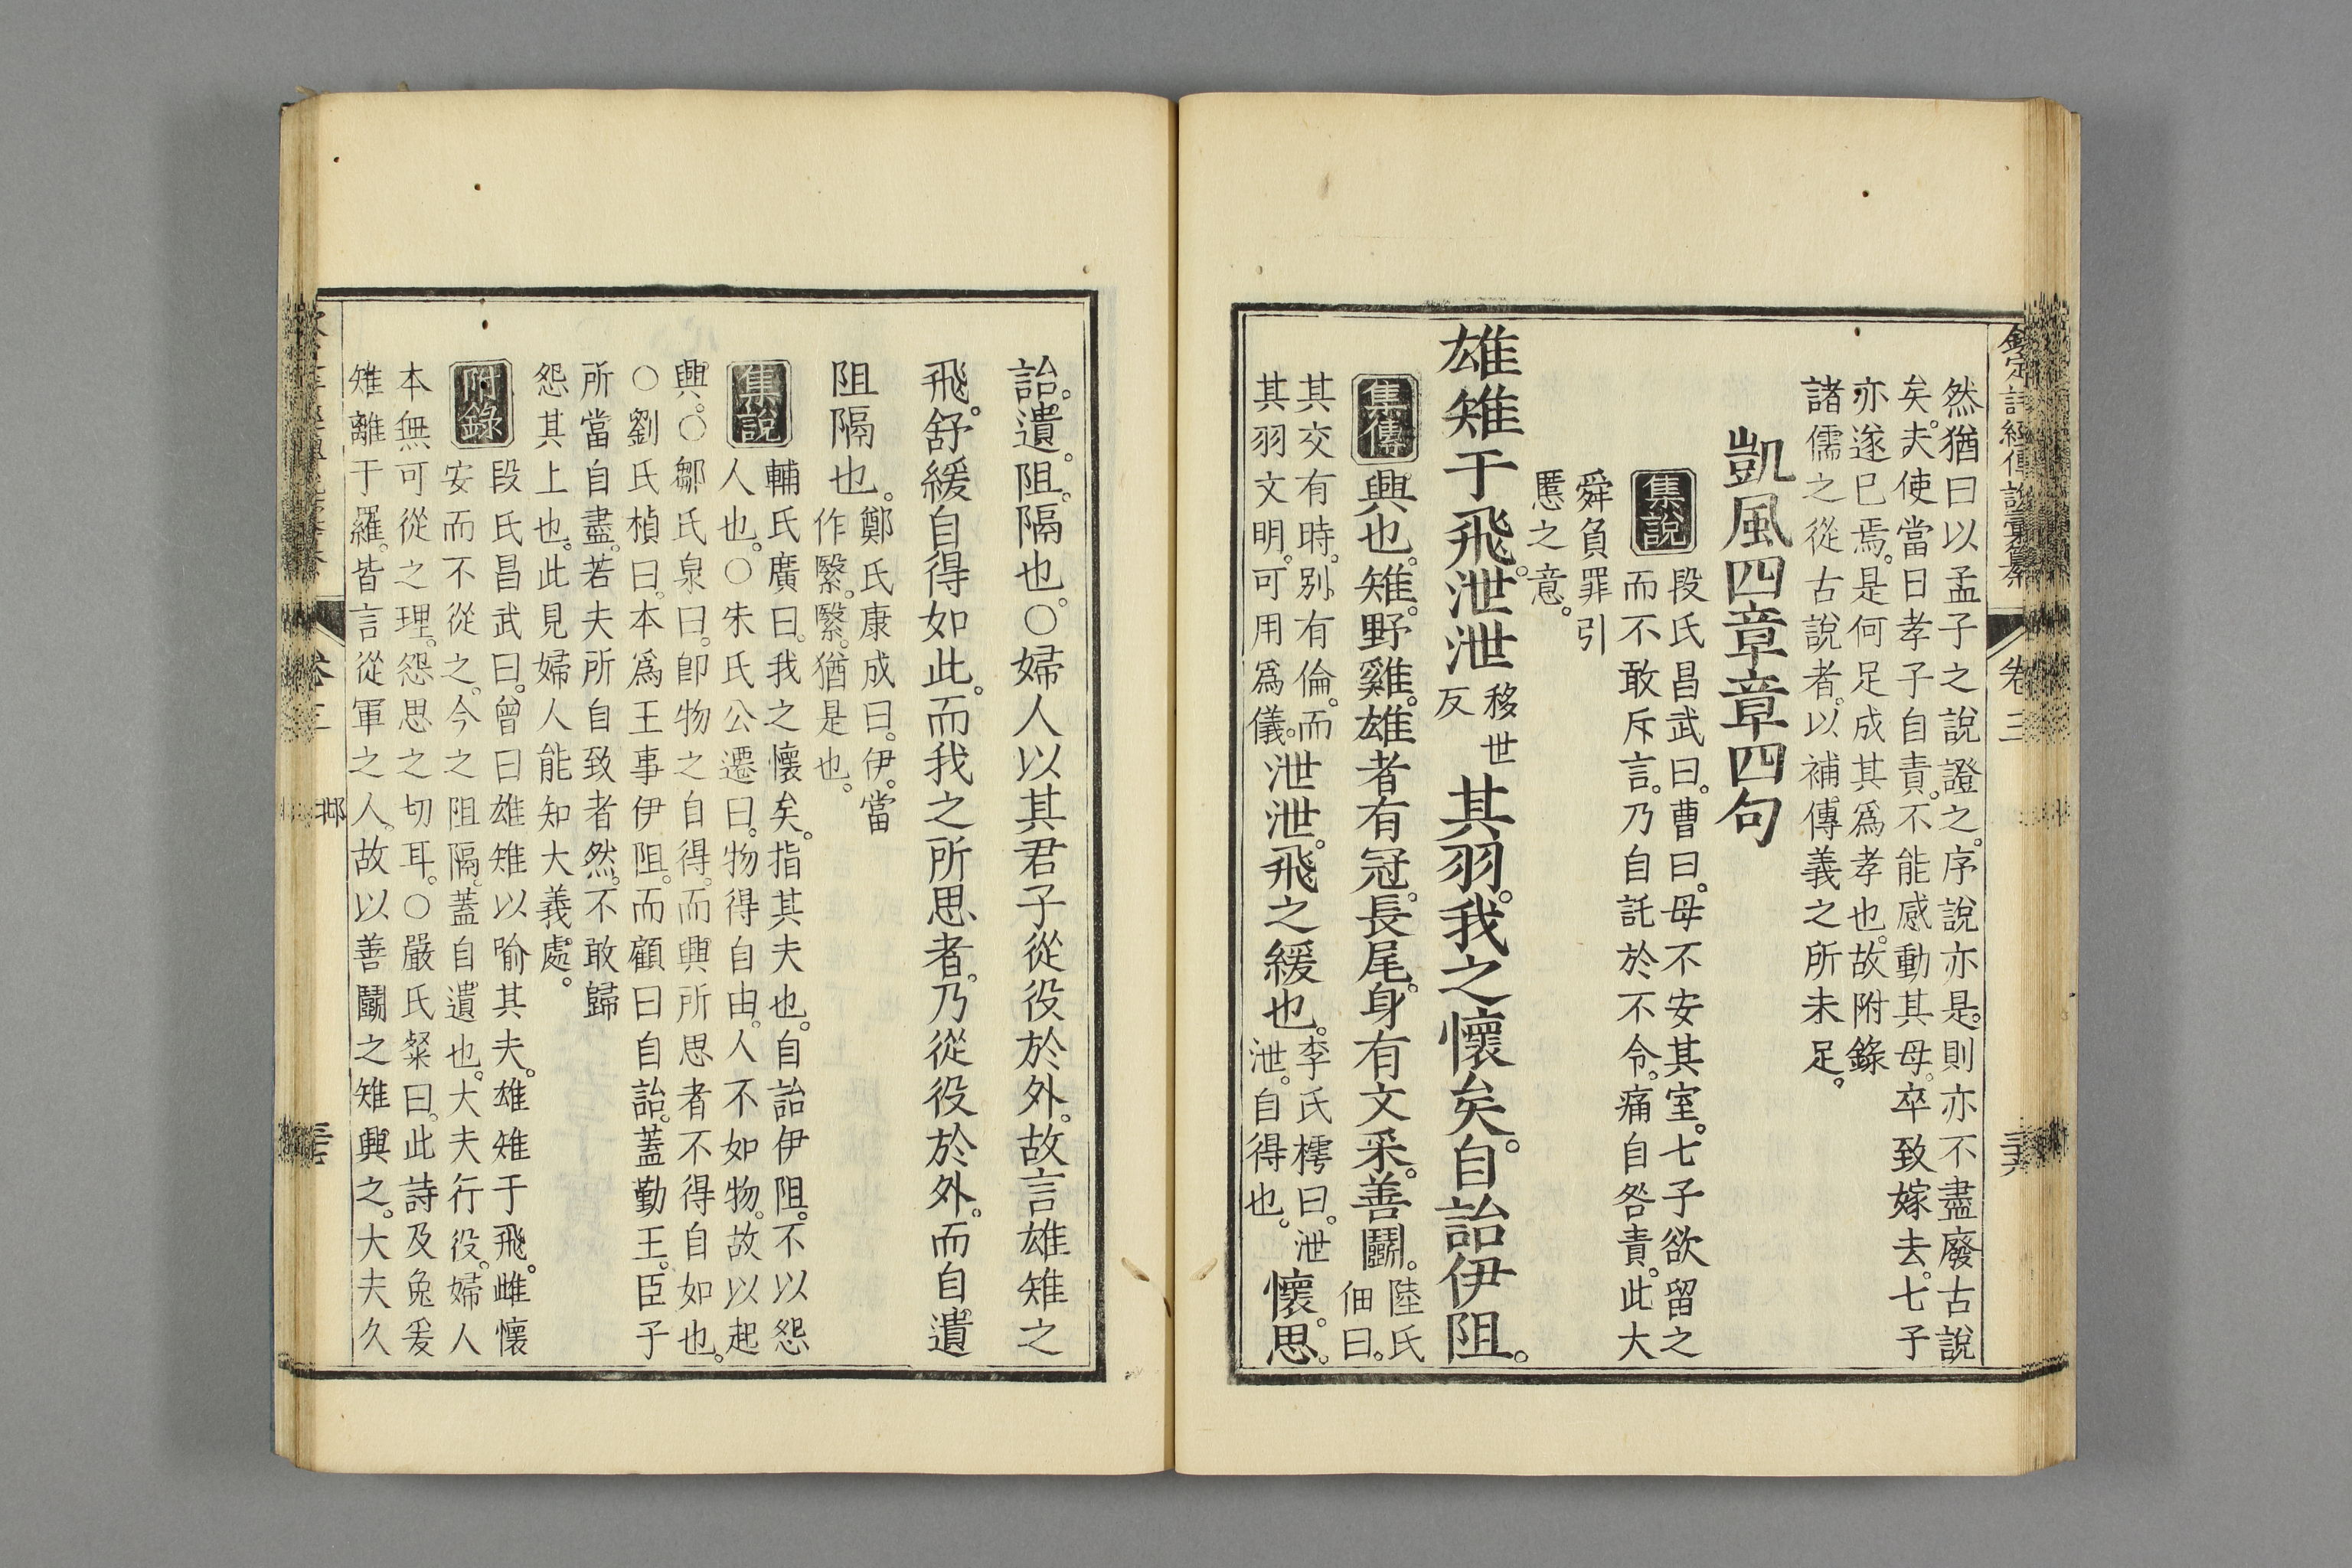 欽定詩經傳說彙纂 卷三 三六
然猶曰以孟子之說證之。序說亦是。則亦不盡廢古說
矣。夫使當日孝子自責。不能感動其母。卒致嫁去。七子
亦遂已焉。是何足成其爲孝也。故附錄
諸儒之從古說者。以補傳義之所未足。
凱風四章章四句
集說 段氏昌武曰。曹曰。母不安其室。七子欲留之
而不敢斥言。乃自託於不令。痛自咎責。此大
舜負罪引
慝之意。
雄雉于飛。泄泄
移世
反
其羽。我之懷矣。自詒伊阻。
集傳 興也。雉。野雞。雄者有冠。長尾。身有文采。善鬭。
陸氏
佃曰。
其交有時。別有倫。而
其羽文明。可用爲儀。
泄泄。飛之緩也。
李氏樗曰。泄
泄。自得也。
懷。思。
詒。遺。阻。隔也。○婦人以其君子從役於外。故言雄雉之
飛。舒緩自得如此。而我之所思者。乃從役於外。而自遺
阻隔也。
鄭氏康成曰。伊。當
作繄。繄。猶是也。
集說 輔氏廣曰。我之懷矣。指其夫也。自詒伊阻。不以怨
人也。○朱氏公遷曰。物得自由。人不如物。故以起
興。○鄒氏泉曰。卽物之自得。而興所思者不得自如也。
○劉氏楨曰。本爲王事伊阻。而顧曰自詒。蓋勤王。臣子
所當自盡。若夫所自致者然。不敢歸
怨其上也。此見婦人能知大義處。
附錄 段氏昌武曰。曾曰雄雉以喻其夫。雄雉于飛。雌懷
安而不從之。今之阻隔。蓋自遺也。大夫行役。婦人
本無可從之理。怨思之切耳。○嚴氏粲曰。此詩及兔爰
雉離于羅。皆言從軍之人。故以善鬭之雉興之。大夫久
卷三 邶